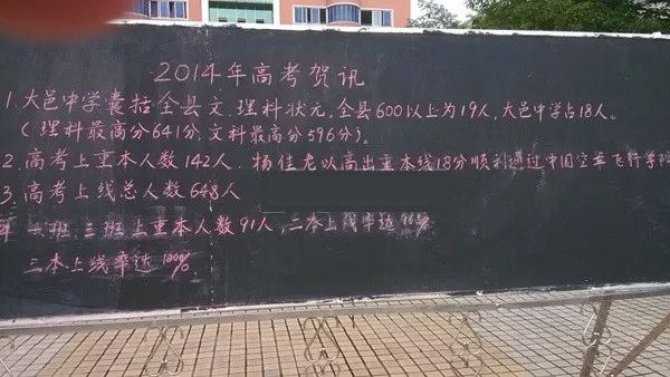 2014年高考贺讯
1.大邑中学囊括全县文.理科状元,全县600以上为19人,大邑中学占18人。
(理科最高分641分,文科最高分596分)。
2.高考上重本人数142人. 杨佳龙以高出重本线18分顺利通过中国空军飞行学
3.高考上线总人数648人
一班.三班上重本人数91人,二本上线率达
三本上线率达100%